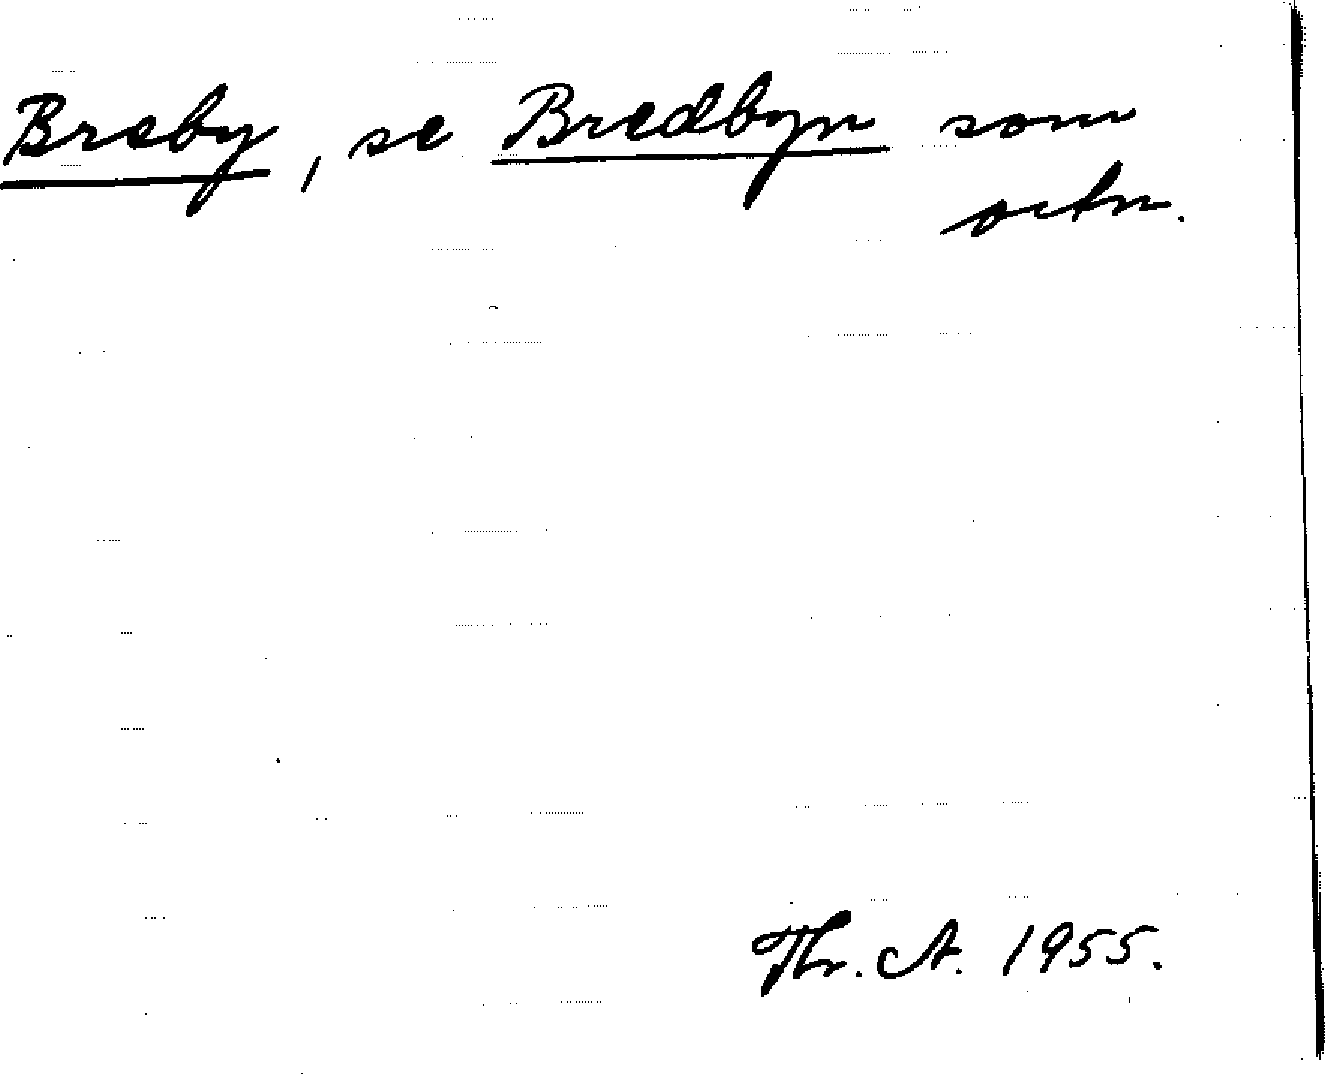 Breby, se Bredbyn som
ortn.
Thr. A. 1955.